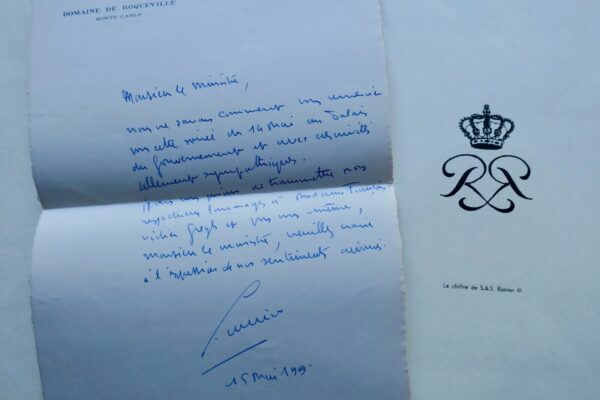 DOMAINE DE ROQUEVILLE
MONTE CARLO
Monsieur le ministre,
nous ne savons comment vous remercier
cette soirée du 14 Mai au Palais
du gouvernement et avec
tellement sympathiques.
de transmettre nos
respectueux hommages à Madame
et vous même,
monsieur le ministre, veuillez croire
à l'expression de nos sentiments dévoués.
15 Mai 1969.
Le chiffre de S.A.S. Rainier III